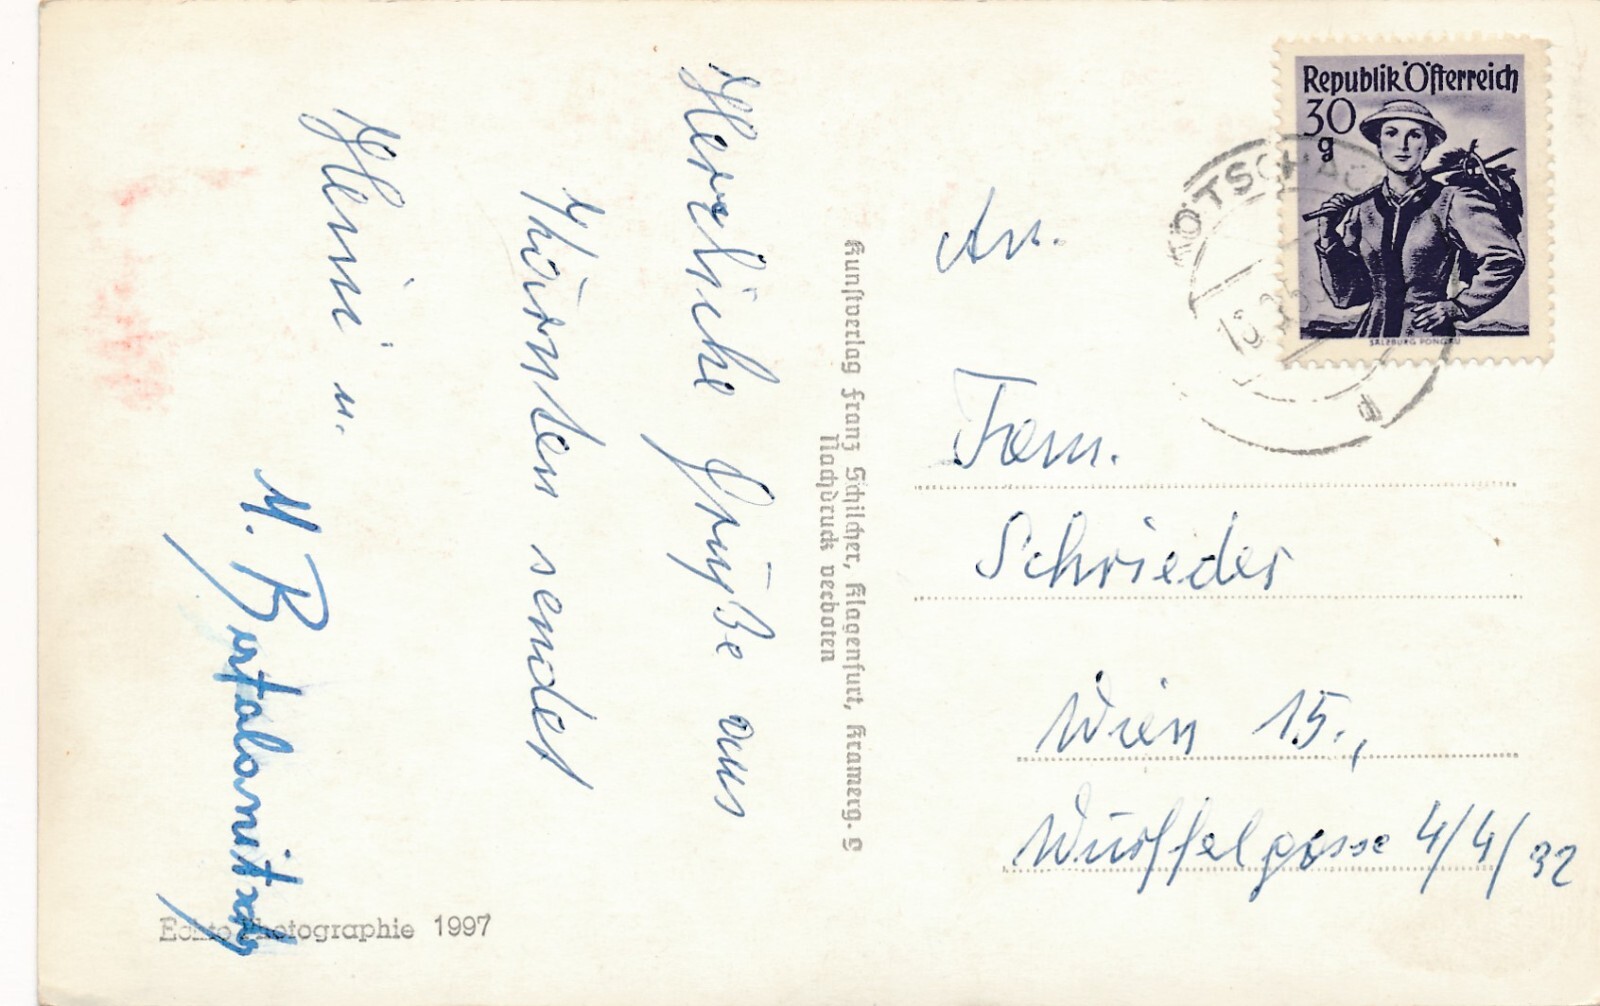 Herzliche Grüße aus
Kärnten sendet
Heini u.
M. Bartalomitsch
Echte Photographie 1997
Kunstverlag Franz Schilcher, Klagenfurt, Kramerg. 9
Nachdruck verboten
Republik Österreich
30
g
SALZBURG PONGAU
KÖTSCHACH
An.
Fam.
Schrieder
Wien 15.,
Wurffelgasse 4/4/32